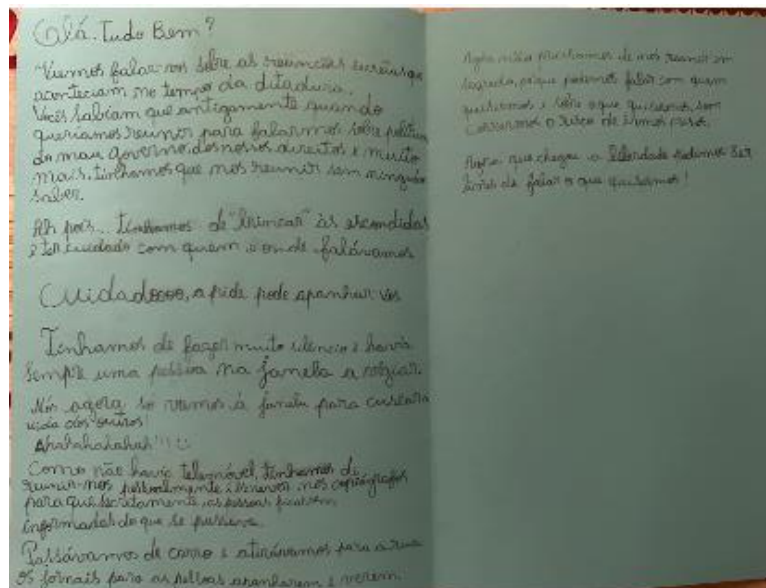 Olá. Tudo Bem?
Viemos falar-vos sobre as reuniões secretas que
aconteciam no tempo da ditadura.
Vocês sabiam que antigamente quando
queríamos reunir para falarmos sobre política
do mau governo, dos nossos direitos e muito
mais, tínhamos que nos reunir sem ninguém
saber.
Ah pois... tínhamos de "brincar" às escondidas
e ter cuidado com quem e onde falávamos
Cuidadoooo, a pide pode apanhar-vos
Tínhamos de fazer muito silêncio e havia
sempre uma pessoa na janela a vigiar.
Nós agora, só vamos à janela para cuscar a
vida dos outros!
Ahahahahahah!!!
Como não havia telemóvel, tínhamos de
reunir-nos pessoalmente e escrever nos copiógrafos
para que secretamente, as pessoas ficassem
informadas do que se passava.
Passávamos de carro e atirávamos para a rua
os jornais para as pessoas apanharem e verem.
Agora não precisamos de nos reunir em
segredo, porque podemos falar com quem
quisermos e sobre o que quisermos, sem
corrermos o risco de irmos presos.
Agora que chegou a liberdade podemos ser
livres de falar o que quisermos!